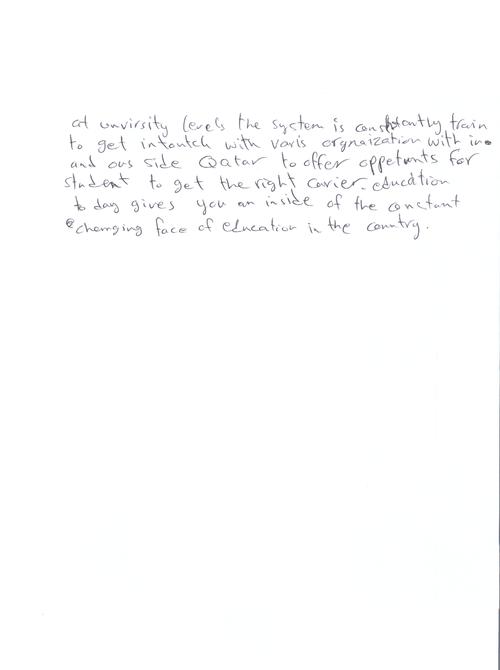 at unvirsity levels the system is constantly train
to get intoutch with varis orgnaization with in
and ous side Qatar to offer oppetunts for
student to get the right carier. education
to day gives you an inside of the constant
changing face of education in the country.